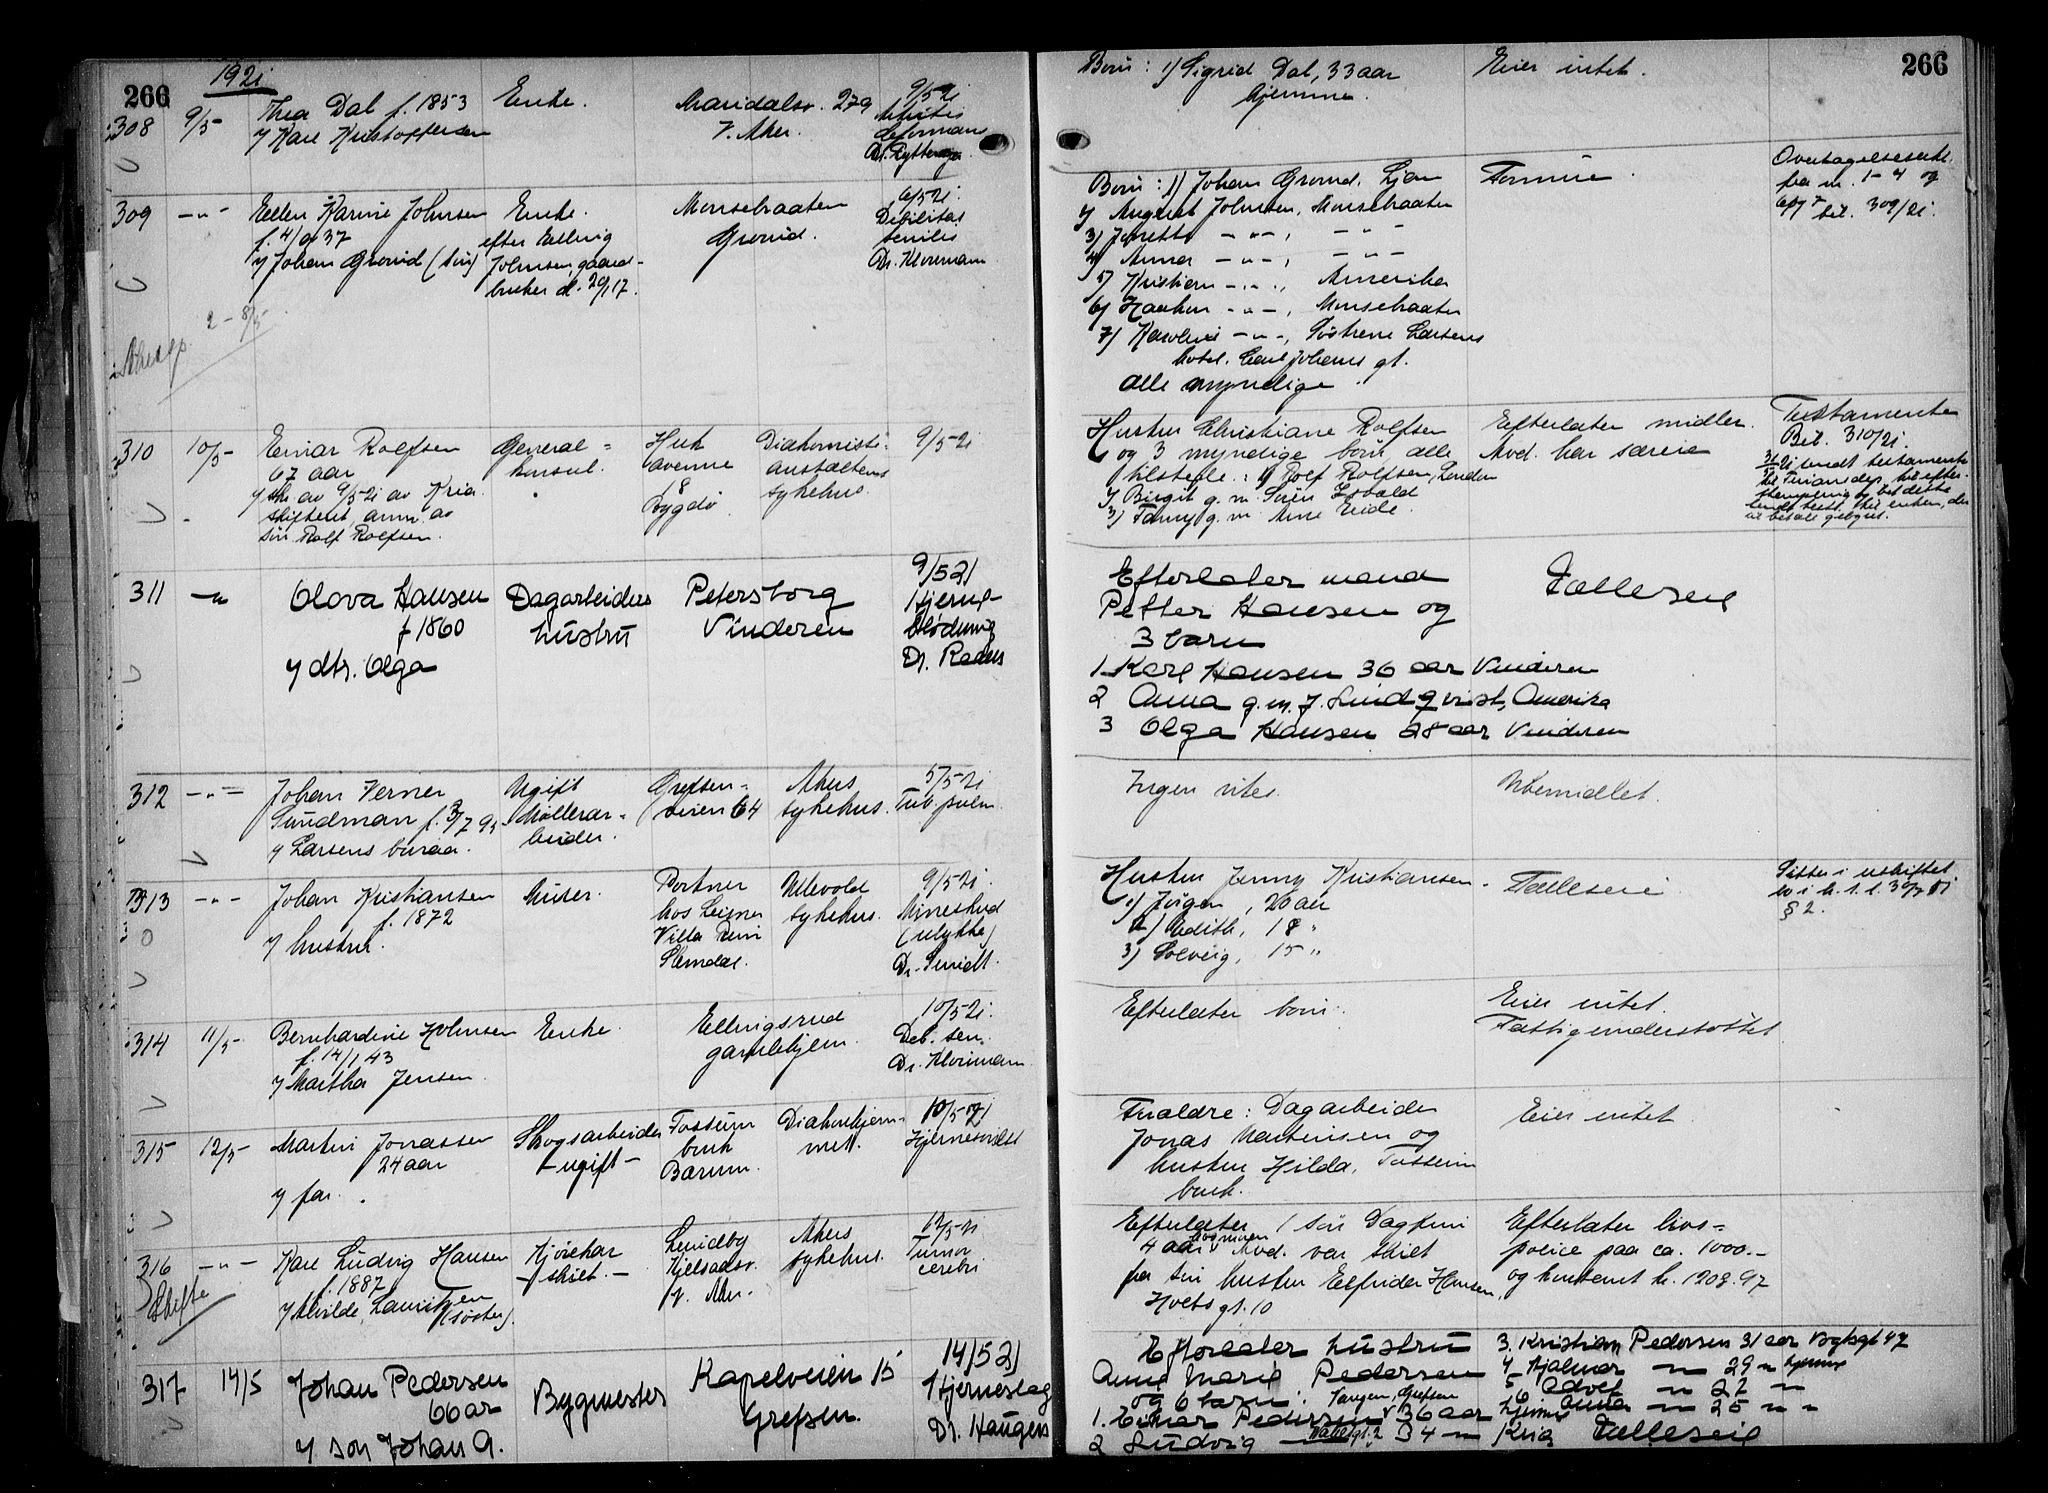 266
1921
308
9/5
Thea Dal f. 1853
Enke.
Maridalsv. 279
9/5 21
Artritis
deformans
Dr. Rytterager
V. Aker.
309
Ellen Karine Johnsen
f. 4/9 37
Enke.
efter Elling
Johnsen, gaard-
bruker d. 29/17.
Monsebraaten
Grorud.
6/5 21.
Debilitas
senilis
Dr. Klouman
v/ Johan Grorud (sön)
2 - 8/5
310
10/5
Einar Rolfsen
67 aar
v/ skr av 9/5 21 av Kria.
skifterett, anm. av
sön Rolf Rolfsen.
General-
konsul.
Huk
avenue
18
Bygdö.
Diakonisse-
anstaltens
sykehus.
9/5 21
311
Olova Hansen
f 1860
v/ dtr. Olga
Dagarbeiders
hustru
Petersborg
Vinderen
9/5 21
Hjerne-
blödning
Dr. Raeder
312
Johan Verner
Sundman f. 3/7 95
v/ Larsens buraa.
Ugift
Möllerar-
beider.
Grefsen-
veien 64
Akers
sykehus.
5/5 21
Tub. pulm.
313
Johan Kristiansen
f. 1872
v/ hustru.
Murer.
Portner
hos Leiner
Villa Rein
Slemdal.
Ullevold
sykehus.
9/5 21.
Mineskud
(ulykke)
Dr. Smidt.
314
11/5
Bernhardine Holmsen
f. 14/1 43
v/ Martha Jensen.
Enke.
Ellingsrud
gamlehjem.
10/5 21.
Deb. sen.
Dr. Klouman
315
12/5
Martin Jonassen
24 aar
v/ far.
Skogsarbeider
- ugift -
Fossum
bruk
Bærum.
Diakonhjem-
met.
10/5 21
Hjernesvulst
316
Skifte
Karl Ludvig Hansen
f. 1887
v/ Alvilde Lauritzen
(söster).
Kjörekar
- skilt. -
Lundby
Kjelsaasv.
v. Aker.
Akers
sykehus.
12/5 21
Tumor
cerebri
317
14/5
Johan Pedersen
66 ar
v/ son Johan A.
Bygmester
Kapelveien 15
Grefsen.
14/5 21
Hjerneslag
Dr. Haugen
266
Born: 1) Sigrid Dal, 33 aar
hjemme.
Eier intet.
Born: 1) Johan Grorud, Ljan
2) August Johnsen, Monsebraaten
3) Josette - " -, - " -
4) Anna - " -, - " -
5) Kristian - " -, Amerika
6) Haakon - " -, Monsebraaten
7) Karoline - " -, Söstrene Larsens
hotel. Carl Johans gt.
alle myndige.
Formue.
Overtagelseserkl.
fra nr. 1-4 og
6 og 7 bil. 309/21.
Hustru Christiane Rolfsen
og 3 myndige born, alle
tilstede: 1) Rolf Rolfsen, London
2) Birgit g. m. Sören Isvald
3) Fanny g. m. Arne Eide.
Efterlater midler.
Avd. har særeie
Testamente
Bil. 310/21.
Efterlater mand
Petter Hansen og
3 barn
1 Karl Hansen 36 aar Vinderen
2 Anna g. m. J. Lindqvist, Amerika
3 Olga Hansen 28 aar Vinderen
Fælleseie
Ingen vites.
Ubemidlet.
Hustru Jenny Kristiansen.
1) Jörgen, 20 aar
2) Edith, 18 "
3) Solveig, 15 "
Fælleseie
Sitter i uskiftet
bo i h. t. l. 30/7 51
§ 2.
Efterlater born.
Eier intet.
Fattigunderstöttet
Forældre: Dagarbeider
Jonas Martinsen og
hustru Hilda, Fossum
bruk.
Eier intet
Efterlater 1 sön Dagfinn
4 aar. Avd. var skilt
fra sin hustru Elfrida Hansen,
Holts gt. 10
Efterlater livs-
police paa ca. 1000.-
og kontant kr. 1208.97
Efterlater hustru
Anne Marie Pedersen
og 6 barn: Tangen, Grefsen
1. Einar Pedersen 36 aar
2 Ludvig - " - 34 - " Kria
3. Kristian Pedersen 31 aar Bghsgt 47
4 Hjalmar - " - 29 " hjemme
5 Adolf - " - 27 - " -
6 Anna - " - 25 - " -
hjemme
Fælleseie